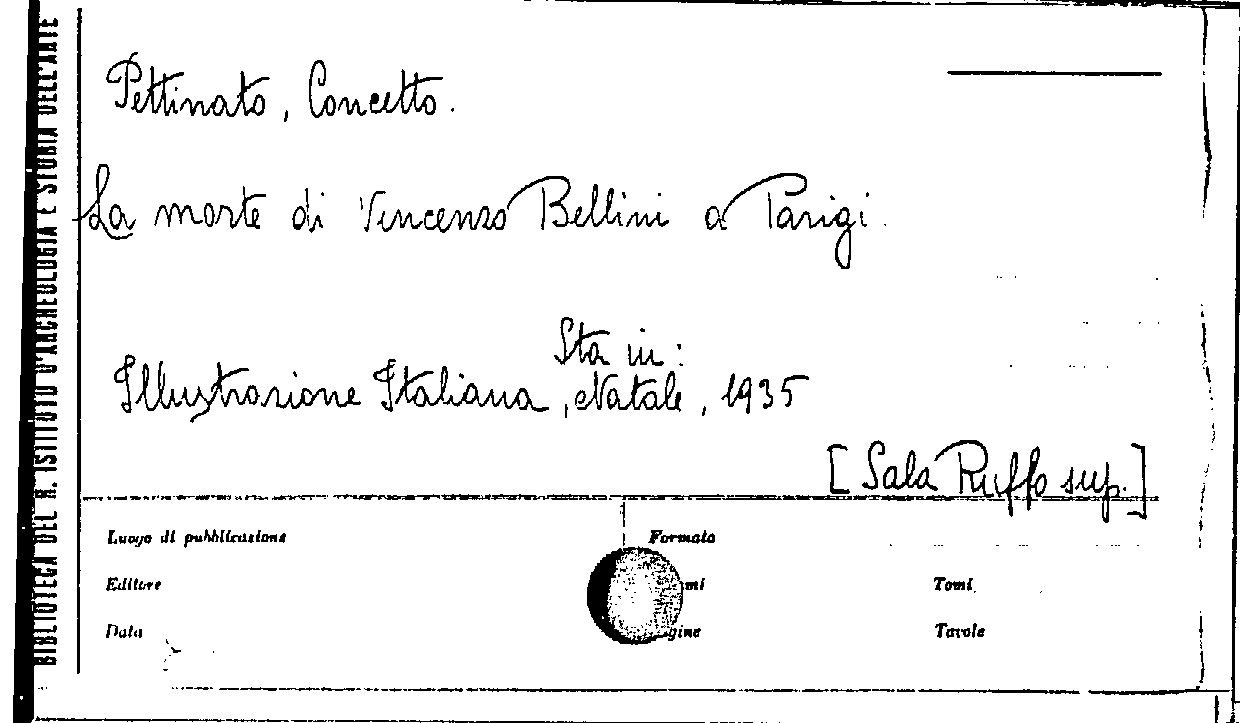 BIBLIOTECA DEL R. ISTITUTO D'ARCHEOLOGIA E STORIA DELL'ARTE
Pettinato, Concetto.
La morte di Vincenzo Bellini a Parigi.
Sta in:
Illustrazione Italiana, Natale, 1935
[Sala Ruffo sup.]
Luogo di pubblicazione
Formato
Editore
mi
Tomi
Data
gine
Tavole